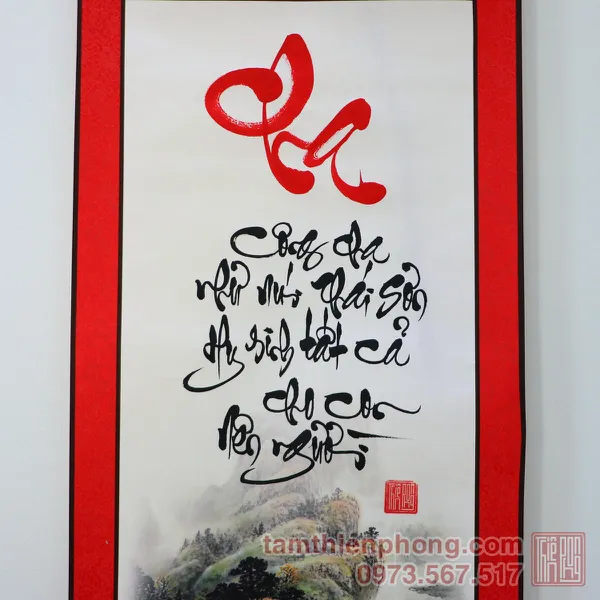 Cha
Công cha
như núi Thái Sơn
Hy sinh tất cả
cho con
nên người
tamthienphong.com
0973.567.517